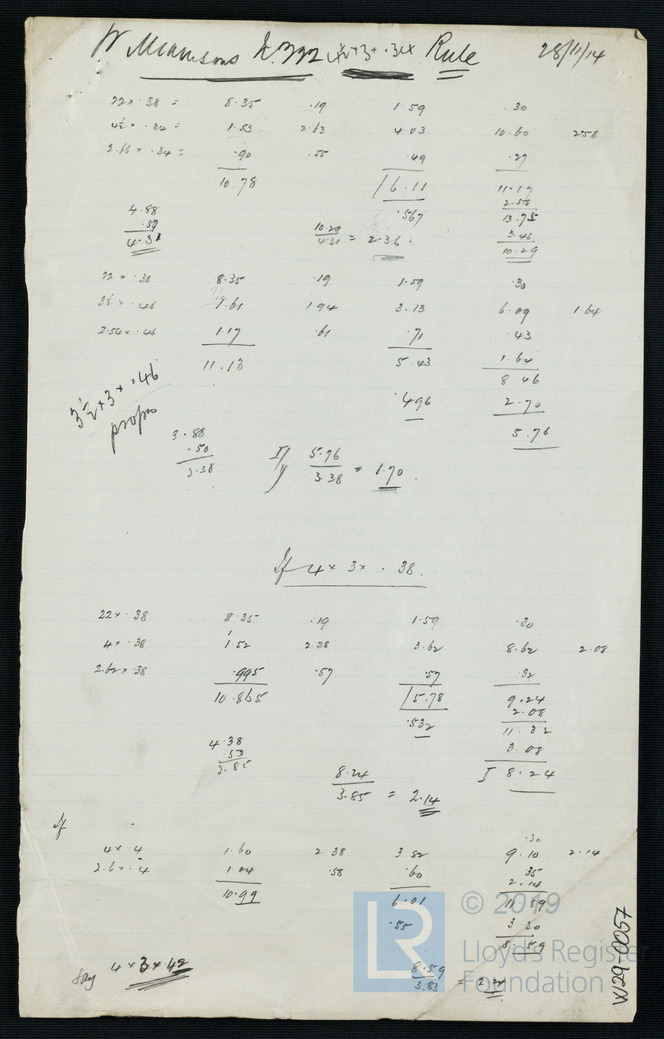 4½×3×.34 Rule 28/11/14
22 × .38 = 8.35 .19 1.59 .30
4½ × .34 = 1.53 2.63 4.03 10.60 2.58
2.66 × .34 = .90 .55 .49 .27
10.78 6.11 11.17
.567 2.58
13.75
4.88 3.46
.57 10.29
4.31
10.29
4.30 = 2.36
22 × .38 8.35 .19 1.59 .30
3½ × .46 1.61 1.94 3.13 6.09 1.64
2.54 × .46 1.17 .61 .71 .43
11.13 5.43 1.64
8.46
.496 2.70
5.76
3½×3×.46
propo
3.88
.50
3.38
I/y 5.76
3.38 = 1.70
If 4 × 3 × .38.
22 × .38 8.35 .19 1.59 .30
4 × .38 1.52 2.38 3.62 8.62 2.08
2.62 × .38 .995 .57 .57 .32
10.865 5.78 9.24
.532 2.08
11.32
4.38 3.08
.53 I 8.24
3.85
8.24
3.85 = 2.14
If
.30
4 × .4 1.60 2.38 3.82 9.10 2.14
2.6 × .4 1.04 .58 .60 .35
10.99 6.01 2.14
11.89
.55 3.30
8.59
Say 4×3×42
8.59
3.83 =
© 2019
Lloyd's Register
Foundation
LR
W29-0057